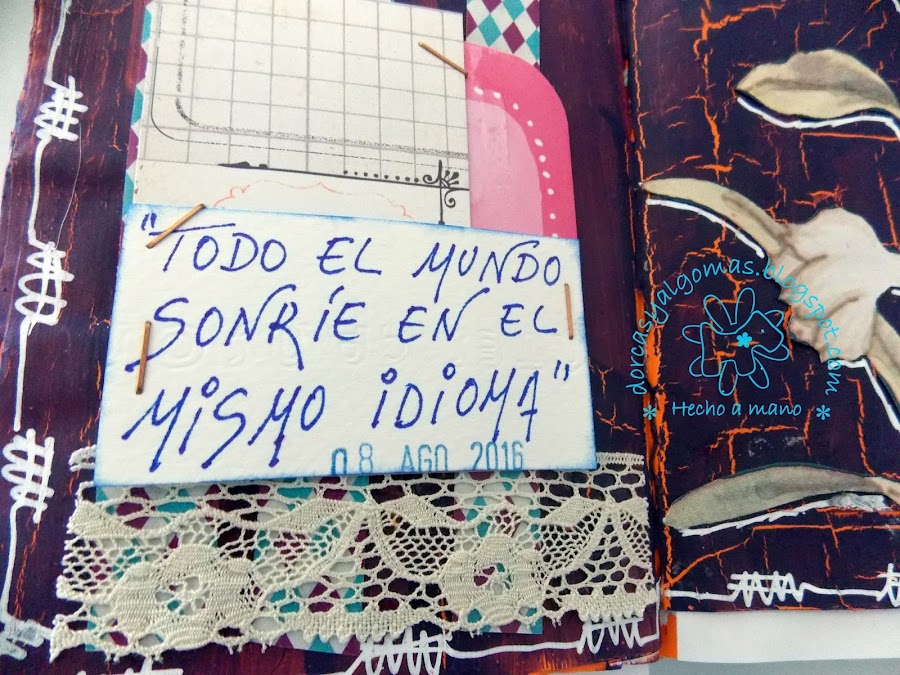 "TODO EL MUNDO
SONRÍE EN EL
MISMO IDIOMA"
08 AGO 2016
dorcasyalgomas.blogspot.com
* Hecho a mano *